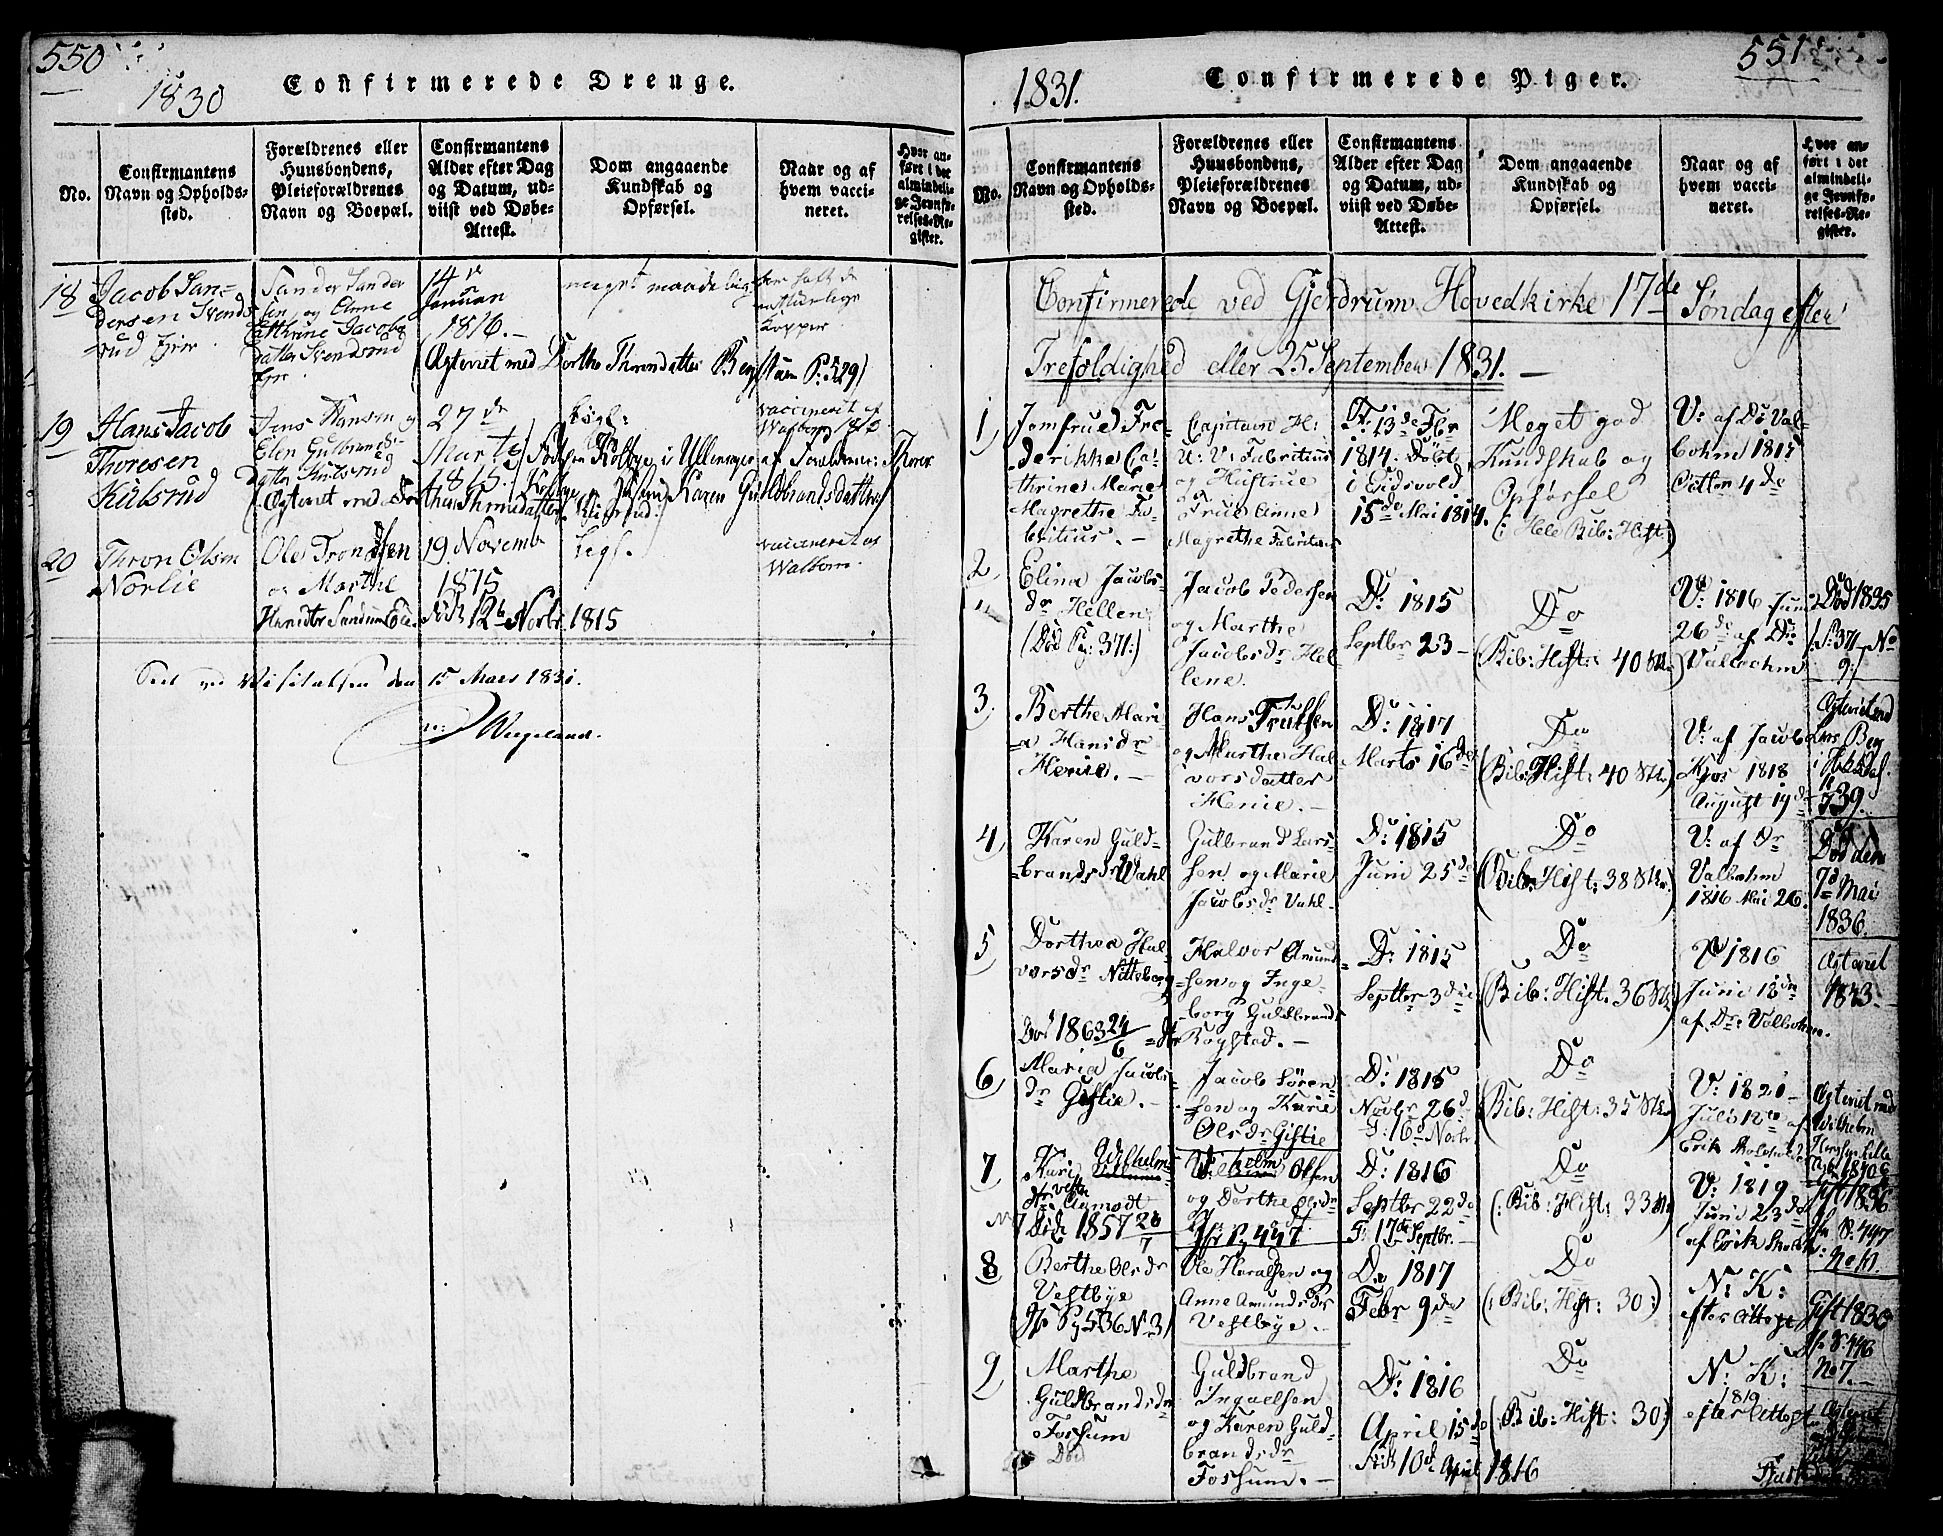 550
1830
Confirmerede Drenge.
No.
Confirmantens
Navn og Opholds-
sted.
Forældrenes eller
Huusbondens,
Pleieforældrenes
Navn og Boepæl.
Confirmantens
Alder efter Dag
og Datum, ud-
viist ved Døbe-
Attest.
Dom angaaende
Kundskab og
Opførsel.
Naar og af
hvem vacci-
neret.
Hvor an-
ført i det
almindeli-
ge Jevnfø-
relses-Re-
gister.
18
Jacob San-
dersen Svends
rud
Sander Sander
sen og Anne
Cathrine Jacobs
datter Svendsrud
14 de
Januari
1816.
meget maadelig
har haft de
naturlige
Kopper
(Ægteviet med Dorthe Throndatter P. 529)
19
Hans Jacob
Thoresen
Kulsrud
Jens Hansen og
Elen Gulbrands
datter Kulsrud
27 de
Marts
1815.
ligl:
vaccineret af
Walbom 1816
20
Thron Olsen
Norlie
Ole Trondsen
og Marthe
19 Novemb
1815
ligl.
vaccineret af
Walbom
Født 12te Novbr. 1815
Seet ved Visitatsen den 15 Mars 1831.
Wergeland.
1831.
Confirmerede Piger.
551
No.
Confirmantens
Navn og Opholds-
sted.
Forældrenes eller
Huusbondens,
Pleieforældrenes
Navn og Boepæl.
Confirmantens
Alder efter Dag
og Datum, ud-
viist ved Døbe-
Attest.
Dom angaaende
Kundskab og
Opførsel.
Naar og af
hvem vacci-
neret.
Hvor an-
ført i det
almindeli-
ge Jevnfø-
relses-Re-
gister.
Confirmerede ved Gjerdrum Hovedkirke 17de Søndag efter
Trefoldighed eller 25 September 1831. —
1
Jomfrue Fre-
derikke Ca-
thrine Marie
Magrethe Fa-
britius. —
Capitain H:
U: V: Fabritius
og Hustrue
Frue Anne
Magrethe Fabritius
F: 13de Fbr
1814. Døbt
i Eidsvold
15de Mai 1814.
Meget god
Kundskab og
Opførsel
(: Hele Bib: Hist:)
V: af Dr Val-
bohm 1815
Octbr 4de
2
Elina Jacobs-
dr Hellen
(Død Pag: 371:)
Jacob Pedersen
og Marthe
Jacobsdr Hel-
lene.
D: 1815
Septbr 23 —
Do
(Bib: Hist: 40 Stk:)
V: 1816 Juni
26de af Dr
Valbohm
Død 1835
P: 371 No
9:)
3
Berthe Mari
a Hansdr
Henie. —
Hans Trulsen
og Marthe Hal
vorsdatter
Henie. —
D: 1817
Marts 16de
Do
(Bib: Hist: 40 Stk:)
V: af Jacob
Kjos 1818
August 19de
Ægteviet med
739.
4
Karen Guld-
brandsdr Wahl
Gulbrand Lars
sen og Marie
Jacobsdr Vahl-
D: 1815
Juni 25de
Do
(Bib: Hist: 38 Stk:)
V: af Dr
Valbohm
1816 Mai 26.
Død den
7de Mai
1836.
5
Dorthea Hal-
vorsdr Nitteberg
Død 1863 24/6
Halvor Amund
sen og Inge-
borg Guldbrands
dr Rogstad. —
D: 1815
Septbr 3die
Do
(Bib: Hist: 36 Stk:)
V 1816
Juni 18de
af Dr: Valbohm.
Ægteviet
1843.
6
Maria Jacobs
dr Gistie. —
Jacob Søren-
sen og Karie
Olsdr Gistie
D: 1815
Novbr 26d
F: 16d Novbr
Do
(Bib: Hist: 35 Stk:)
V: 1821 —
Juli 12te af
Erik
Ægteviet med
Wilhelm
7
Kari Wilhelms
dr Aamodt
Død 1857 28/7
Vilhelm Olsen
og Dorthe Olsdr
P. 447
D: 1816
Septbr 22de
F: 17de Septbr.
Do
(: Bib: Hist: 33 Stk:)
V: 1819
Juni 23de
af Erik
Gift 1836
P. 447
8
Berthe Olsdr
Vestbye
(Pg 536 N. 3)
Ole Haralsen og
Anne Amundsdr
Vestbye. —
Do 1817
Febr 9de
Do
(: Bib: Hist: 30:)
N: K:
efter Attest
Gift 1836
P. 446
No 7.
9
Marthe
Guldbrandsdr
Fossum
Død
Guldbrand
Ingaelsen
og Karen Guld-
brandsdr
Fossum. —
D: 1816
April 15de
Født 10de April 1816
Do
(Bib: Hist: 30:)
N: K:
1819
efter Attest
Ægteviet